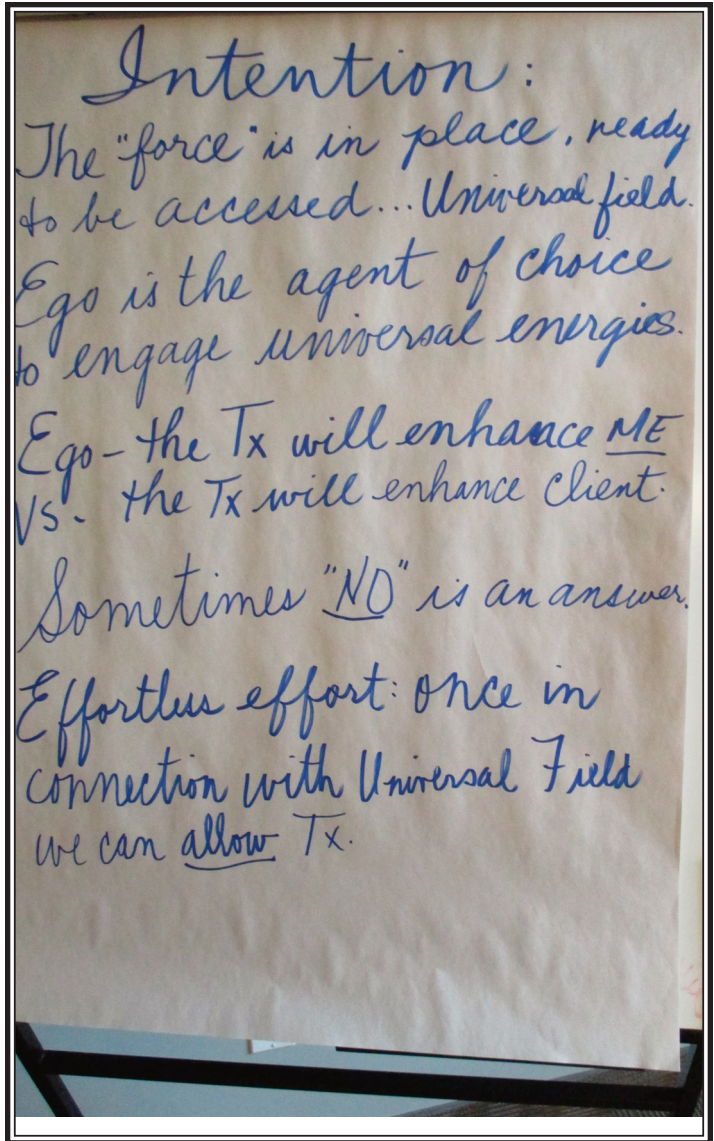 Intention:
The "force" is in place, ready
to be accessed... Universal field.
Ego is the agent of choice
to engage universal energies.
Ego - the Tx will enhance ME
VS. the Tx will enhance Client.
Sometimes "NO" is an answer.
Effortless effort: once in
connection with Universal Field
we can allow Tx.